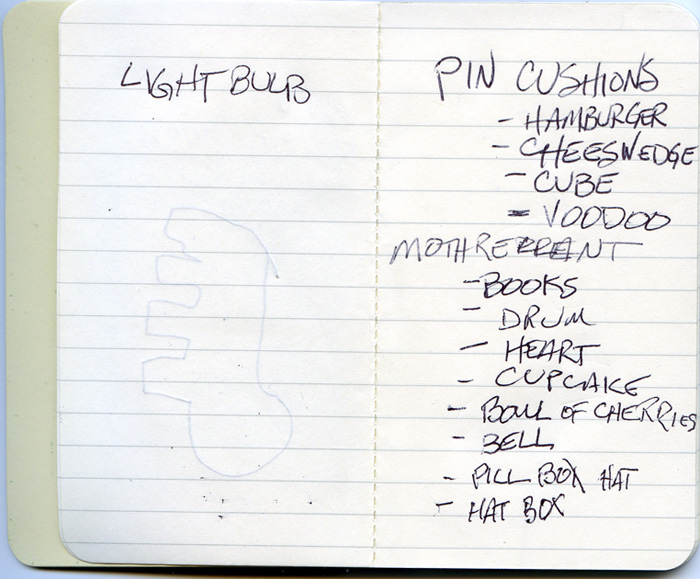 LIGHT BULB
PIN CUSHIONS
- HAMBURGER
- CHEESWEDGE
- CUBE
- VOODOO
MOTH REPPENT
- BOOKS
- DRUM
- HEART
- CUPCAKE
- BOWL OF CHERRIES
- BELL
- PILL BOX HAT
- HAT BOX